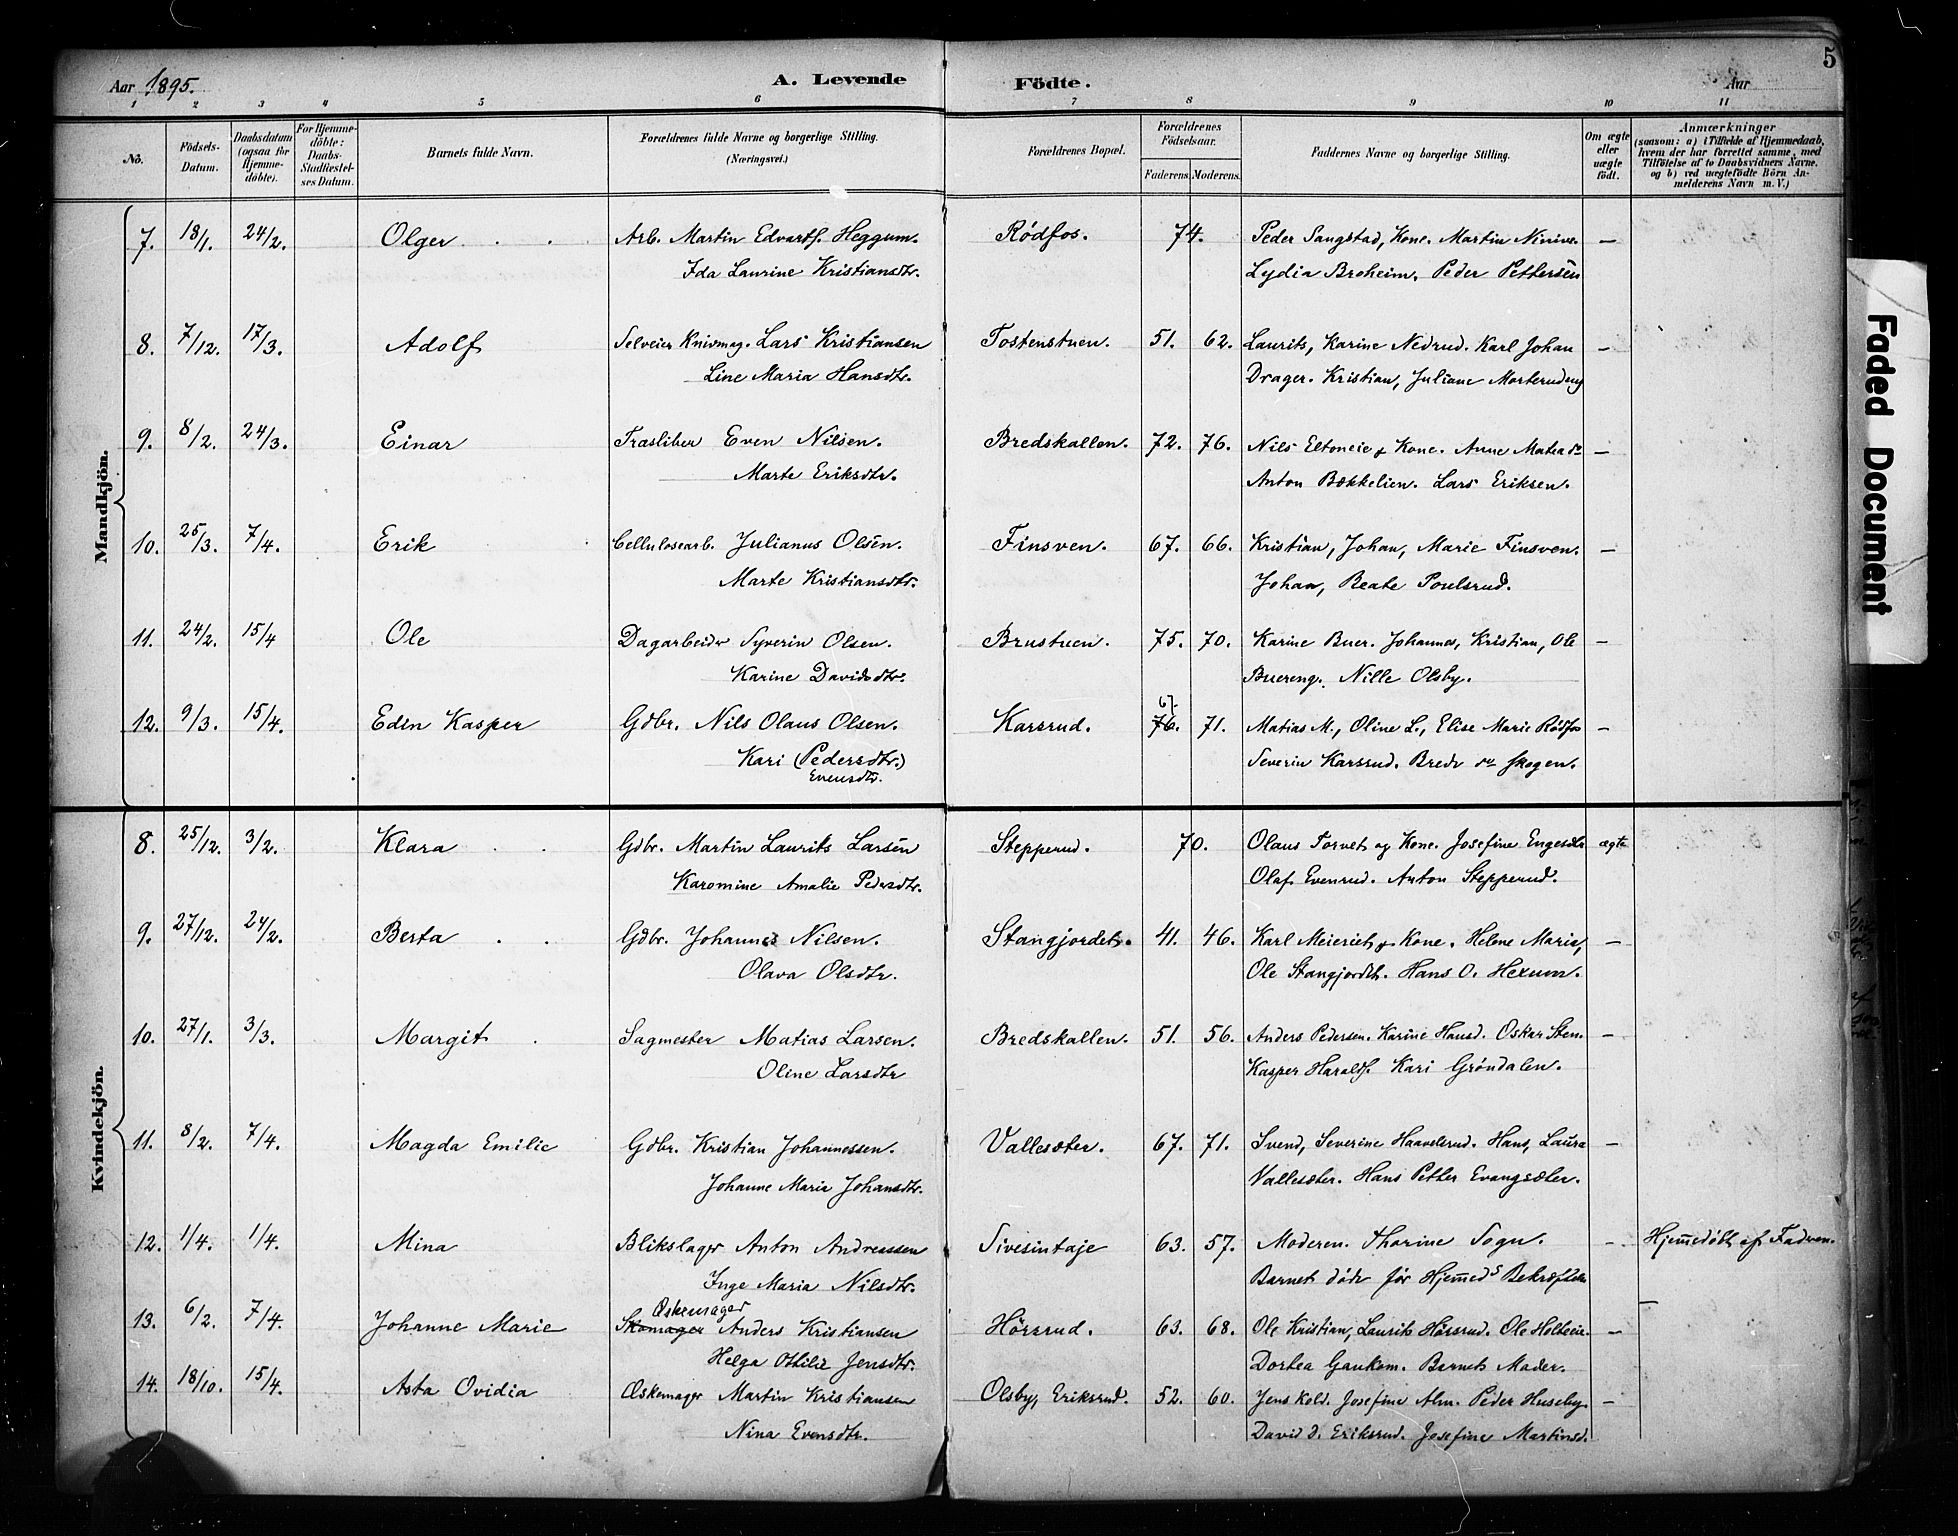 5
Aar 1895. A. Levende Fødte. Aar
1 2 3 4 5 6 7 8 9 10 11
No. Fødsels-Datum. Daabsdatum (ogsaa for Hjemmedøbte). For Hjemmedøbte: Daabs-Stadfæstelses Datum. Barnets fulde Navn. Forældrenes fulde Navne og borgerlige Stilling. (Næringsvei.) Forældrenes Bopæl. Forældrenes Fødselsaar. Faderens. Moderens. Faddernes Navne og borgerlige Stilling. Om ægte eller uægte født. Anmærkninger (saasom: a) i Tilfælde af Hjemmedaab, hvem der har forrettet samme, med Tilføielse af to Daabsvidners Navne, og b) ved uægtefødte Børn Anmelderens Navn m. V.)
Mandkjön.
7. 18/1. 24/2. Olger Arb. Martin Edvarts. Heggum. Rødfos. 74. Peder Sangstad, Kone. Martin Ninive. —
Ida Laurine Kristiansdtr. Lydia Broheim. Peder Pettersen
8. 7/12. 17/3. Adolf Selveier Knivmag. Lars Kristiansen Tostenstuen. 51. 62. Laurits, Karine Nedrud. Karl Johan —
Line Maria Hansdtr. Drager. Kristian, Juliane Morterudeng
9. 8/2. 24/3. Einar Træsliber Even Nilsen. Bredskallen. 72. 76. Nils Eltoneie & Kone. Anne —
Marte Eriksdtr. Anton Bækkelien. Lars Eriksen.
10. 25/3. 7/4. Erik Cellulosearb. Julianus Olsen. Finsven. 67. 66. Kristian, Johan, Marie Finsven. —
Marte Kristiansdtr. Johan, Beate Poulsrud.
11. 24/2. 15/4 Ole Dagarbeider Syverin Olsen. Brustuen. 75. 70. Karine Buer. Johannes, Kristian, Ole —
Karine Davidsdtr. Buereng. Nille Olsby.
12. 9/3. 15/4. Eden Kasper Gdbr. Nils Olaus Olsen. Karsrud. 67. 76. 71. Matias M., Oline L., Elise Marie Rødfos —
Kari (Pedersdtr.) Severin Karsrud. Bredv skogen.
Evensdtr.
Kvindekjön.
8. 25/12. 3/2. Klara Gdbr. Martin Laurits Larsen Stepperud. 70. Olaus Torvet og Kone. Josefine ægte
Karomine Amalie Pedersdtr. Olaf Evenrud. Anton Stepperud.
9. 27/12. 24/2. Berta Gdbr. Johannes Nilsen. Stangjordet. 41. 46. Karl Meieriet & Kone. Helene Maria, —
Olava Olsdtr. Ole Stangjordet. Hans O. Hexum.
10. 27/1. 3/3. Margit Sagmester Matias Larsen. Bredskallen. 51. 56. Anders Pedersen. Karine Hansd. Oskar Sten. —
Oline Larsdtr Kasper Haralds. Kari Grøndalen.
11. 8/2. 7/4. Magda Emilie Gdbr. Kristian Johannessen. Vallesæter. 67. 71. Svend, Severine Haavelsrud. Hans, Laura —
Johanne Marie Johansdtr. Vallesæter. Hans Petter Evangsæter.
12. 1/4. 1/4. Mina Blikslager Anton Andreassen Sivesintaje 63. 57. Moderen. Thorine Sogn. — Hjemedøbt af Fadren.
Inge Maria Nilsdtr. Barnet døde før Hjemeds Bekræftelse
13. 6/2. 7/4. Johanne Marie Skomager Øskemager Anders Kristiansen Hørsrud. 63. 68. Ole Kristian, Laurits Hørsrud. Ole Holteeie. — —
Helga Otilie Jensdtr. Dortea Gaukom. Barnets Moder.
14. 18/10. 15/4. Asta Ovidia Øskemager Martin Kristiansen Olsby, Eriksrud. 52. 60. Jens Kold. Josefine Alm. Peder Huseby. —
Nina Evensdtr. David D. Eriksrud. Josefine Martinsd.
Faded Document